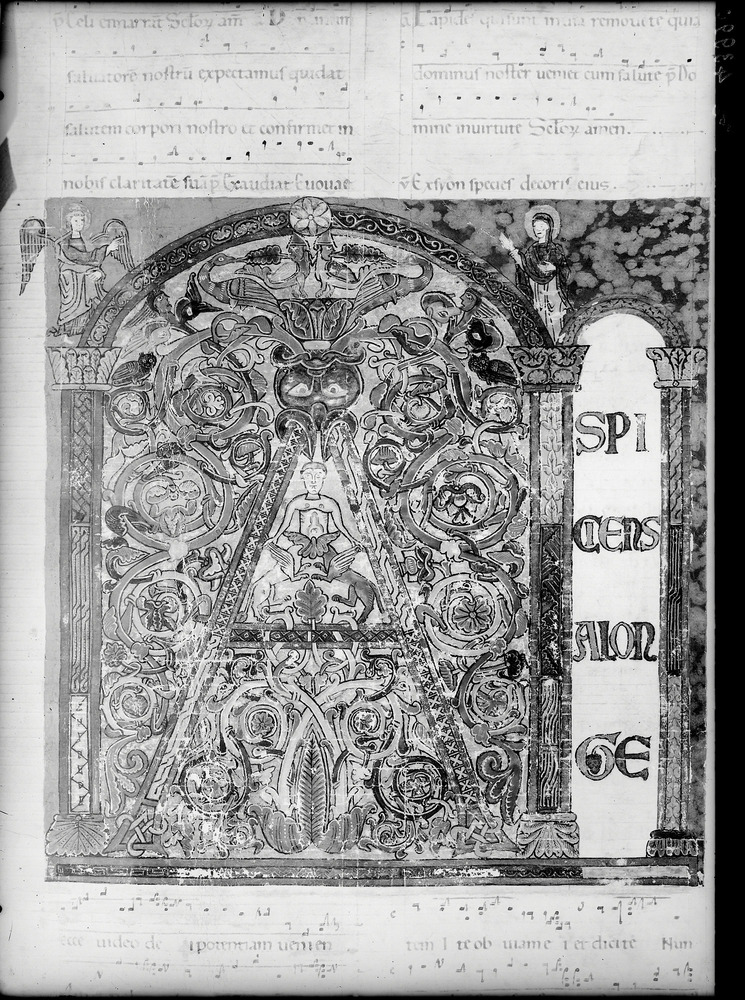 Celi enarrant Scloȝ am̄
saluatorē nostrū expectamus qui dat
salutem corpori nostro et confirmet in
nobis claritatē suā p̄ Exaudiat Euouae
Lapides qui sunt in uia remouete quia
dominus noster ueniet cum salute p̄ Do
mine in uirtute Scloȝ amen.
v̄ Ex syon species decoris eius.
SPI
CIENS
A LON
GE
ecce uideo de i potentiam uenien
tem I te ob uiam e i et dicite Nun